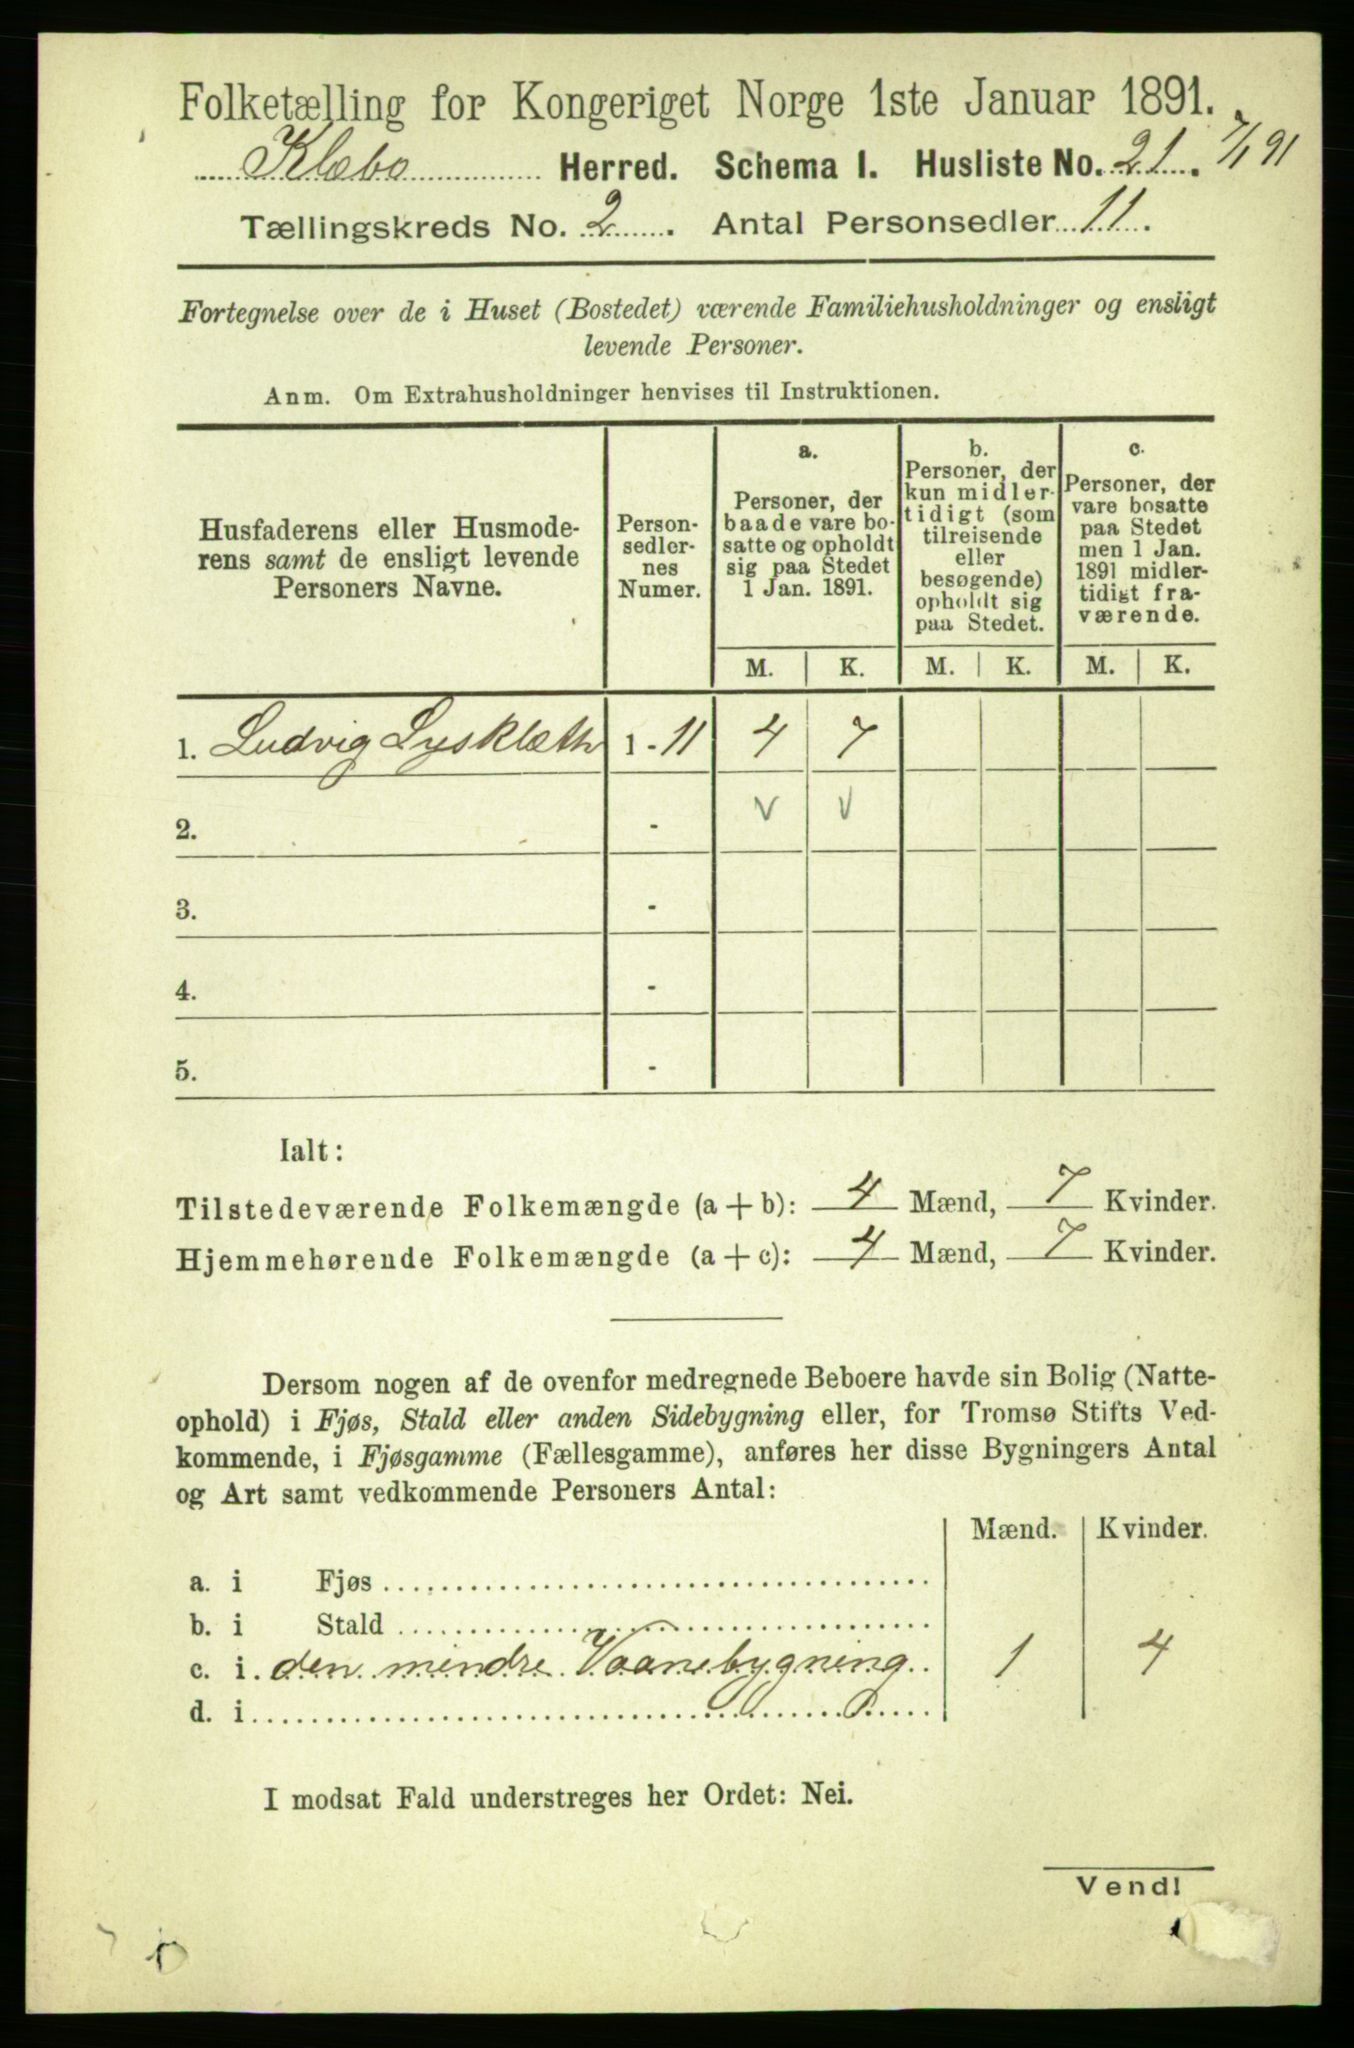 Folketælling for Kongeriget Norge 1ste Januar 1891.
Klæbo Herred. Schema I. Husliste No. 21. 7/1 91
Tællingskreds No. 2. Antal Personsedler 11.
Fortegnelse over de i Huset (Bostedet) værende Familiehusholdninger og ensligt
levende Personer.
Anm. Om Extrahusholdninger henvises til Instruktionen.
Husfaderens eller Husmode-
rens samt de ensligt levende
Personers Navne.
Person-
sedler-
nes
Numer.
a.
Personer, der
baade vare bo-
satte og opholdt
sig paa Stedet
1 Jan. 1891.
b.
Personer, der
kun midler-
tidigt (som
tilreisende
eller
besøgende)
opholdt sig
paa Stedet.
c.
Personer, der
vare bosatte
paa Stedet
men 1 Jan.
1891 midler-
tidigt fra-
værende.
M. K. M. K. M. K.
1. Ludvig Lysklæth 1 - 11 4 7
2. - V V
3. -
4. -
5. -
Ialt:
Tilstedeværende Folkemængde (a + b): 4 Mænd, 7 Kvinder.
Hjemmehørende Folkemængde (a + c): 4 Mænd, 7 Kvinder.
Dersom nogen af de ovenfor medregnede Beboere havde sin Bolig (Natte-
ophold) i Fjøs, Stald eller anden Sidebygning eller, for Tromsø Stifts Ved-
kommende, i Fjøsgamme (Fællesgamme), anføres her disse Bygningers Antal
og Art samt vedkommende Personers Antal:
Mænd. Kvinder.
a. i Fjøs
b. i Stald
c. i den mindre Vaanebygning 1 4
d. i
I modsat Fald understreges her Ordet: Nei.
Vend!